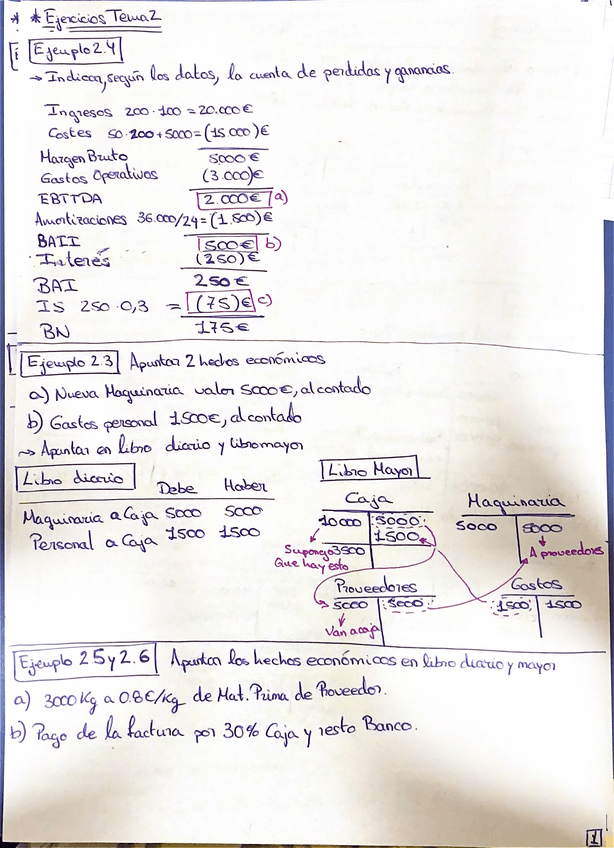 * * Ejercicios Tema 2
Ejemplo 2.4
→ Indica, según los datos, la cuenta de perdidas y ganancias.
Ingresos 200·100 = 20.000€
Costes 50·200+5000=(15.000)€
Margen Bruto 5000€
Gastos Operativos (3.000)€
EBITDA 2.000€ a)
Amortizaciones 36.000/24=(1.500)€
BAII 500€ b)
Interés (250)€
BAI 250€
IS 250·0,3 = (75)€ c)
BN 175€
Ejemplo 2.3 Apuntar 2 hechos económicos
a) Nueva Maquinaria valor 5000€, al contado
b) Gastos personal 1500€, al contado
→ Apuntar en libro diario y libro mayor
Libro diario Debe Haber
Maquinaria a Caja 5000 5000
Personal a Caja 1500 1500
Libro Mayor
Caja
10000 5000
1500
3500
Supongo
Que hay esto
Maquinaria
5000 5000
A proveedores
Proveedores
5000 5000
Van a caja
Gastos
1500 1500
Ejemplo 2.5 y 2.6 Apuntar los hechos económicos en libro diario y mayor
a) 3000 Kg a 0.8€/Kg de Mat. Prima de Proveedor.
b) Pago de la factura por 30% Caja y resto Banco.
1